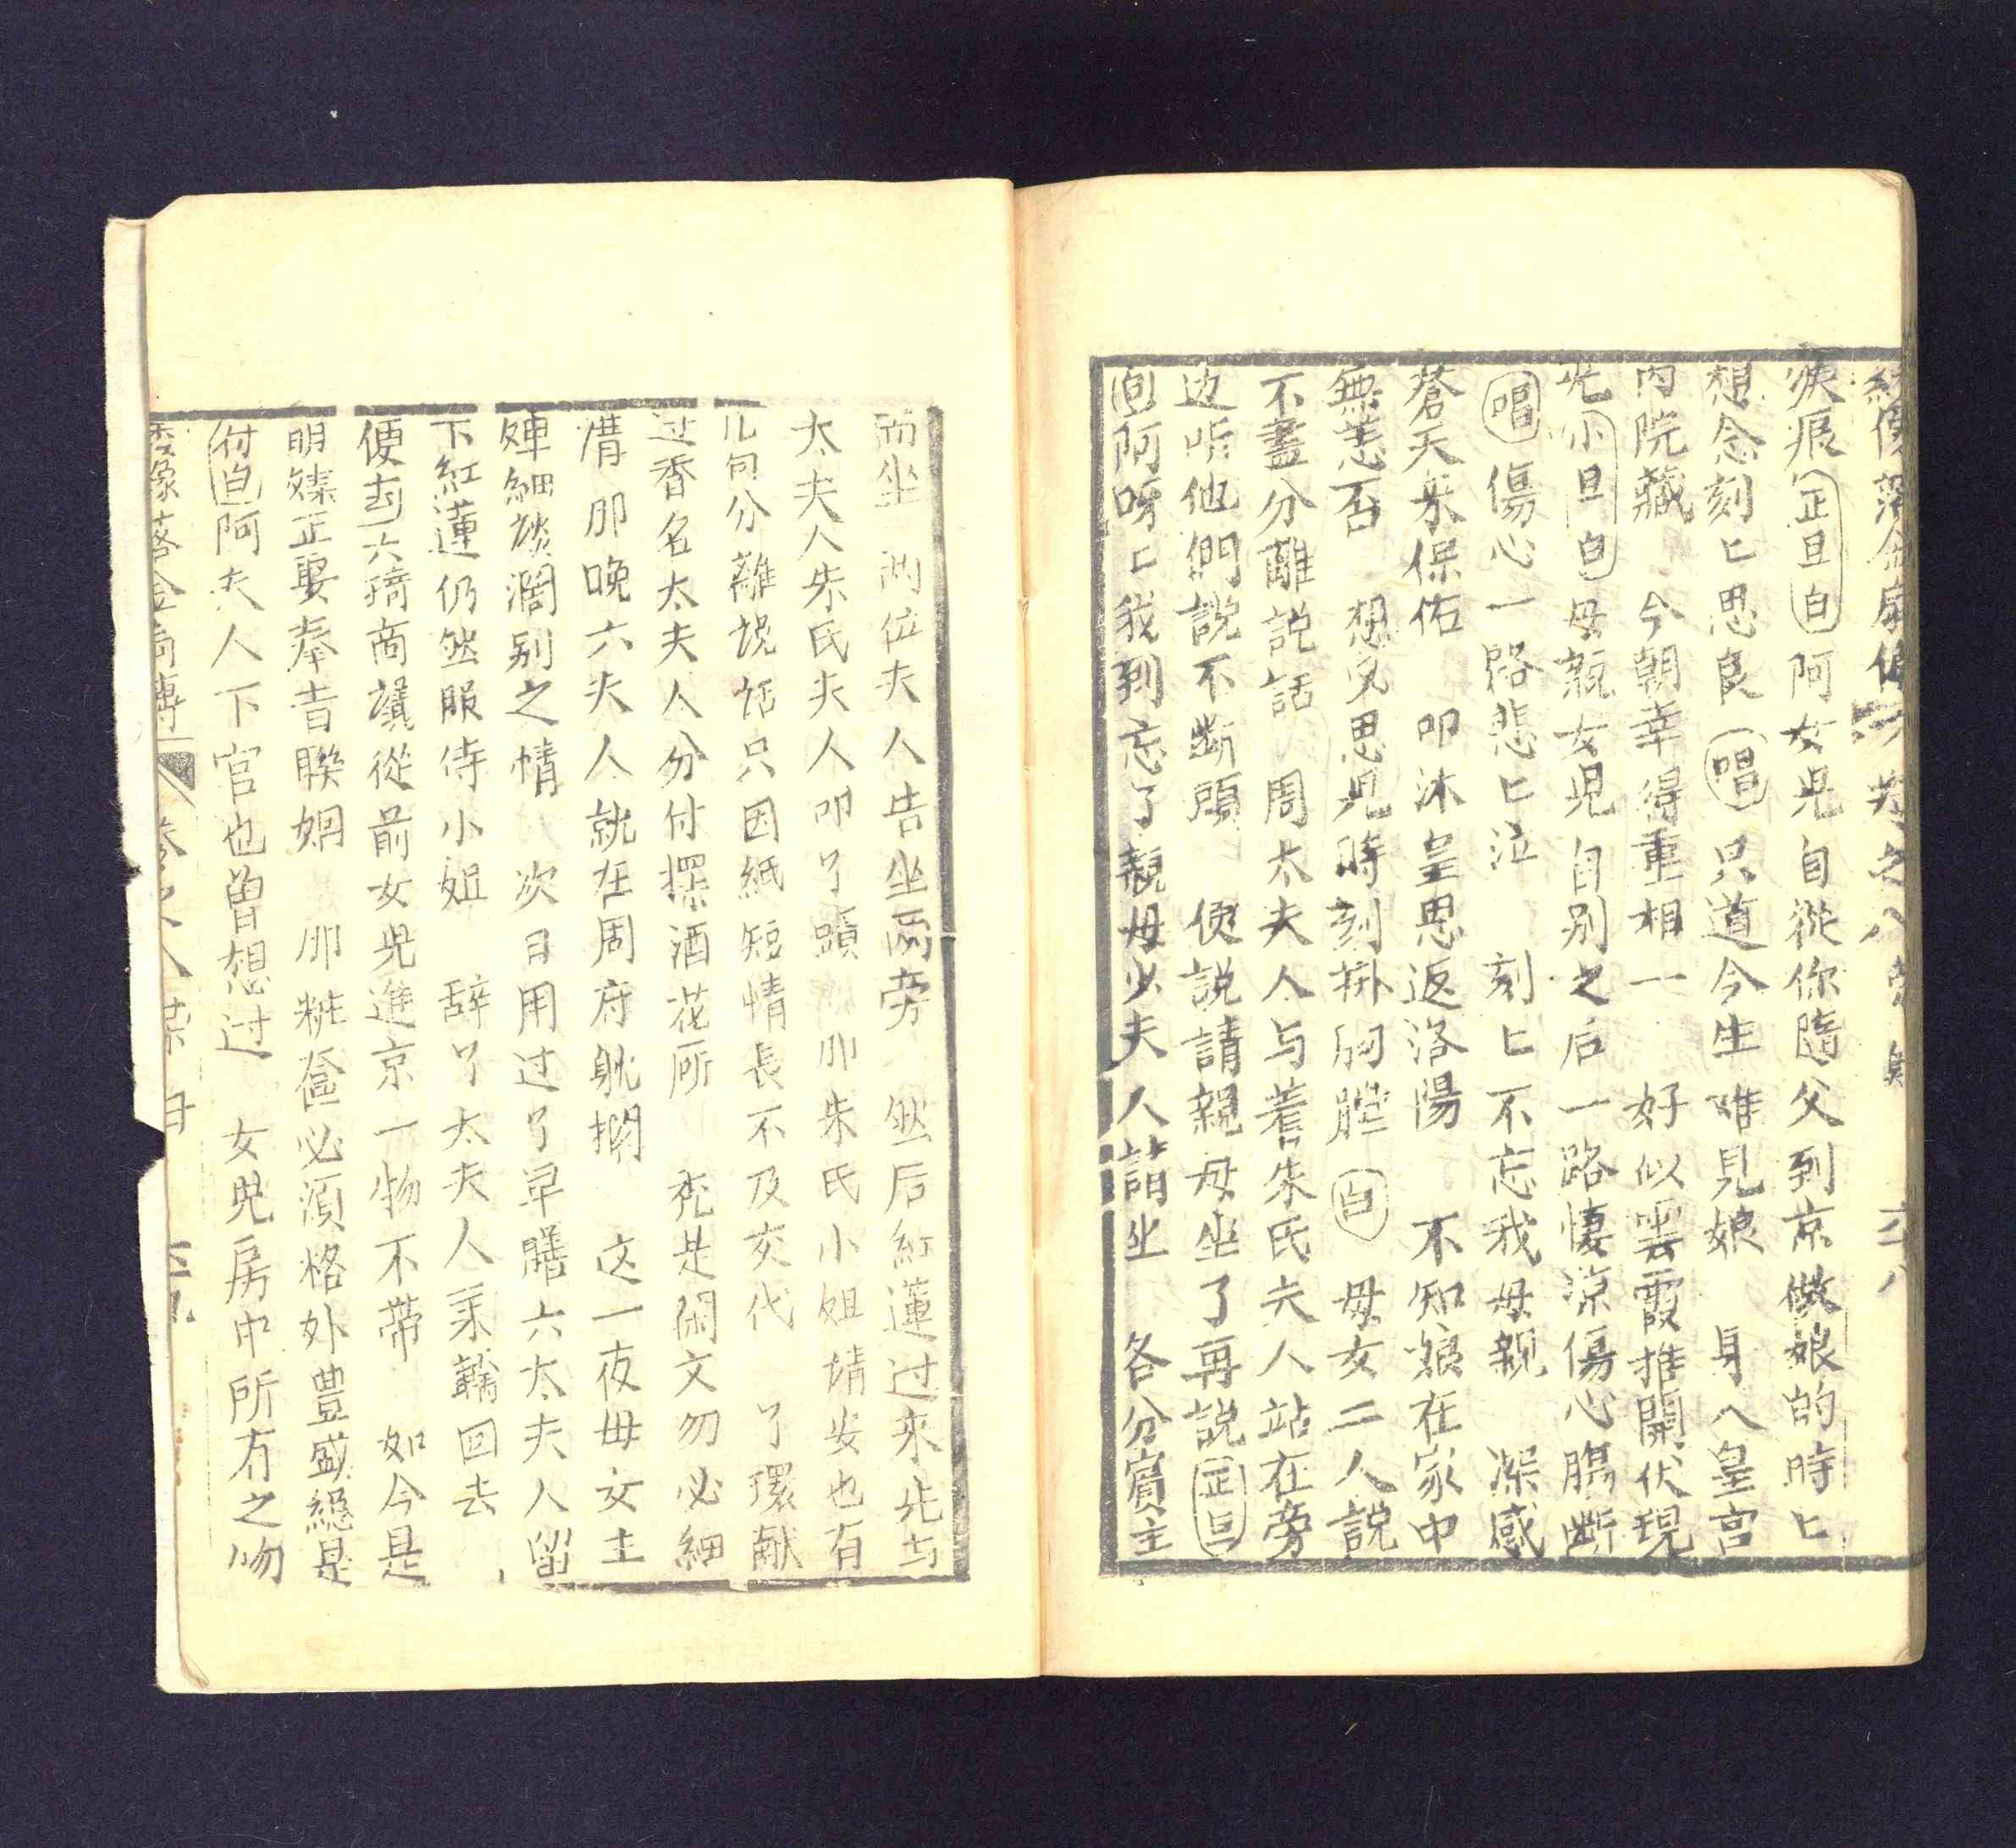 淚痕（正旦白）阿女兒自從你隨父到京做娘的時匕
想念刻匕思良（唱）只道今生难見娘　身入皇宫
内院藏　今朝幸得重相一　好似雲霞推開伏現
光（小旦白）母親女児自别之后一路悽凉傷心膓断
（唱）傷心一路悲匕泣　刻匕不忘我母親　深感
蒼天來保佑　叩沐皇恩返洛陽　不知娘在家中
無恙否　想兒思児時刻掛胸膛（白）母女二人説
不盡分離説話　周太夫人与着朱氏夫人站在旁
边听他們説不断頭　便説請親母坐了再説（正旦
白）阿呀匕我到忘了親母少夫人請坐　各分賓主
而坐　两位夫人告坐两旁　然后紅蓮过來先与
太夫人朱氏夫人叩了頭　朱氏小姐請安也有
几句分離説話只因紙短情長不及交代　了環献
过香名太夫人分付擺酒花所　　是闲文勿必細
　　晚六夫人就在周府躭擱　这一夜母女主
婢細談濶别之情　次日用过了早膳六太夫人留
下紅蓮仍然服侍小姐　辞了太夫人乘轎回去
便与六　商議從前女児進京一物不帶　如今是
明媒正娶奉旨聨姻　粧奩必須格外豊盛總是
付（白）阿夫人下官也曾想过　女兒房中所有之物